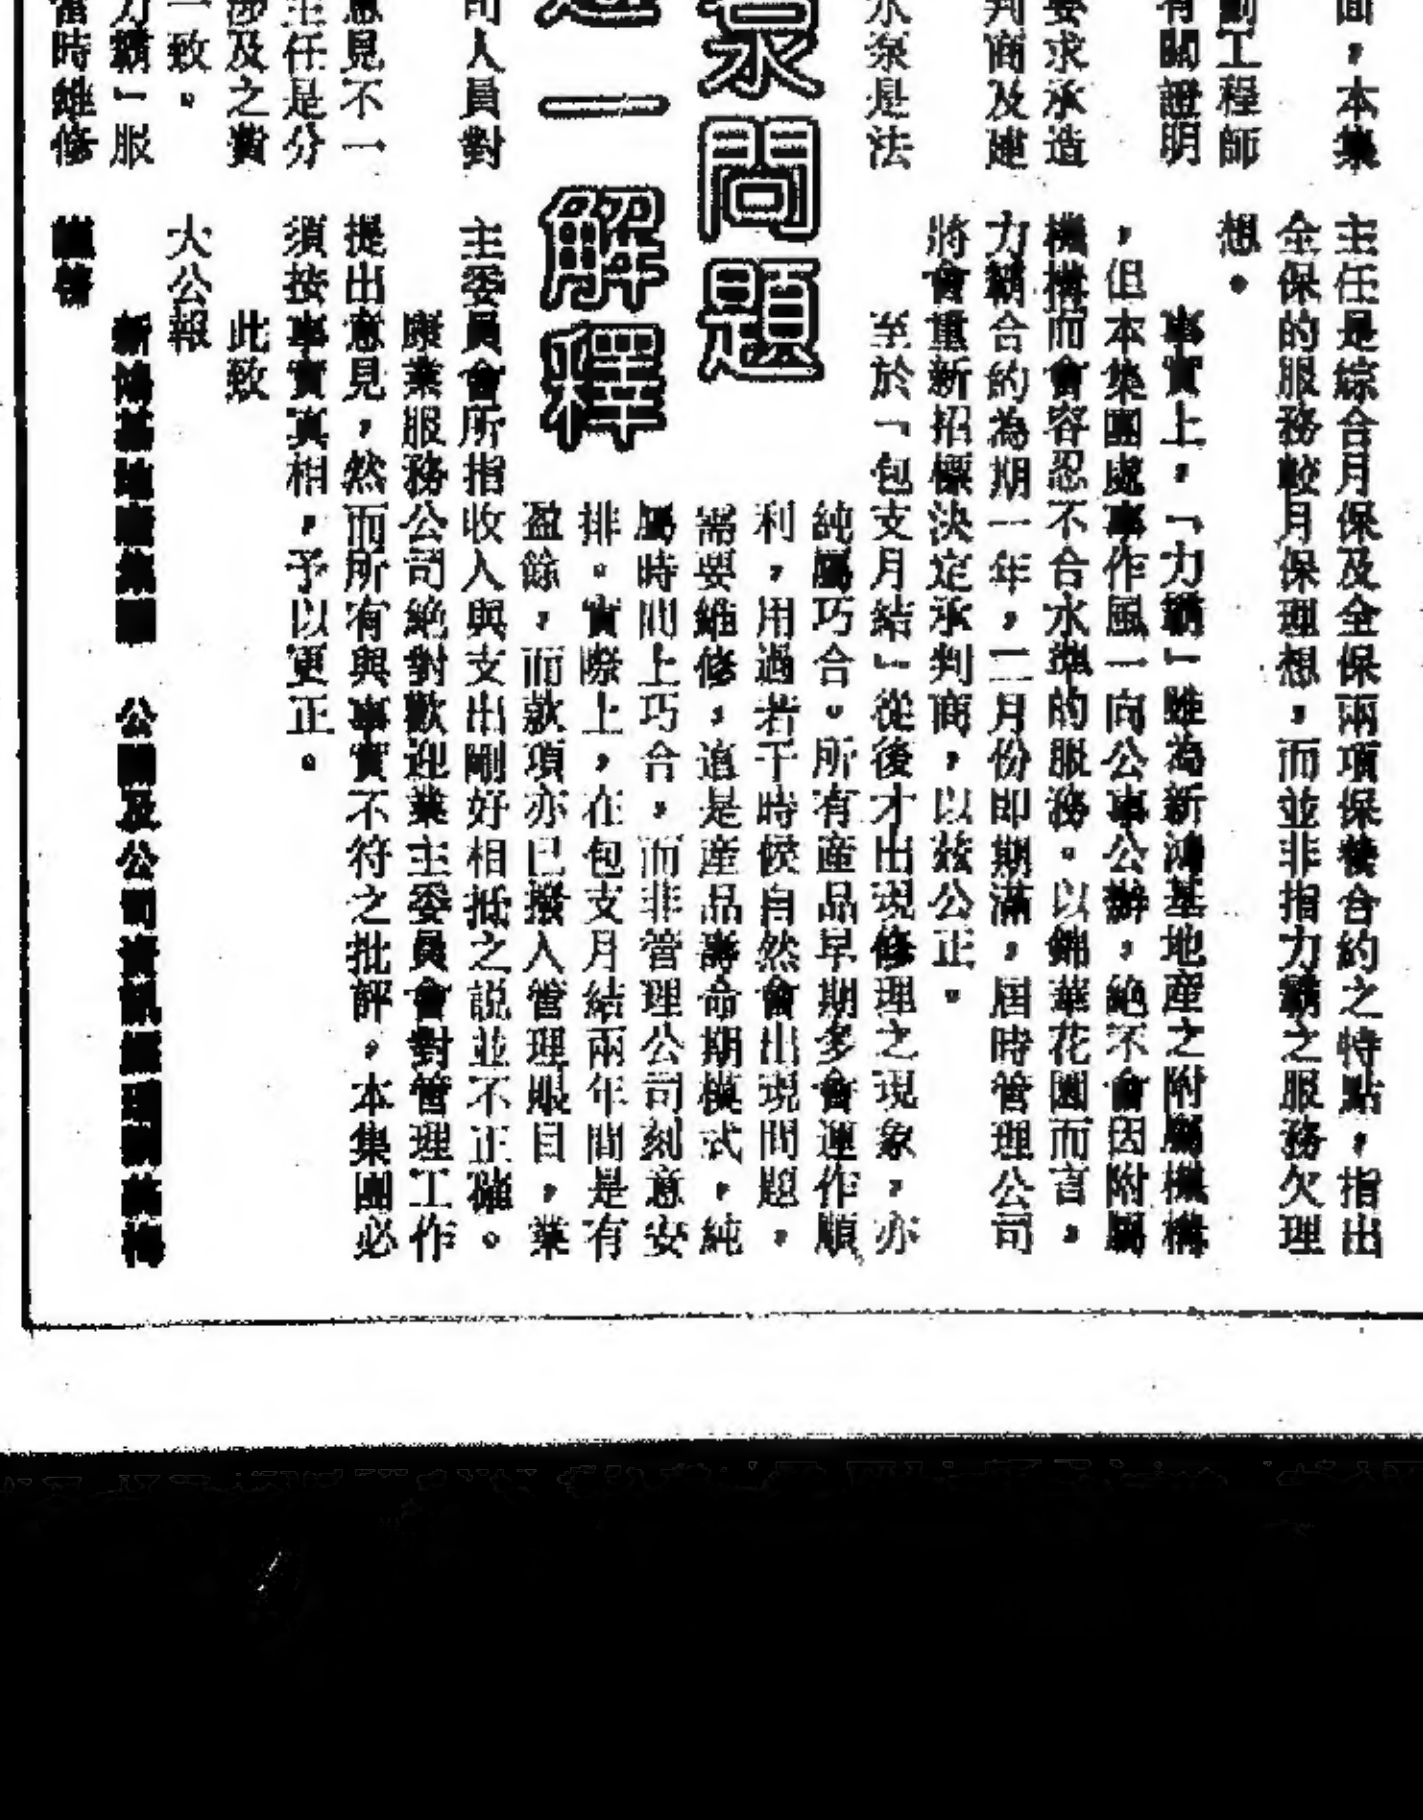 面，本集
劃工程師
有關證明
要求承造
判商及建
水泵是法
泵問題
一解釋
司人員對
意見不一
主任是分
涉及之費
一致。
力霸」服
當時維修
主任是綜合月保及全保兩項保養合約之特點，指出
全保的服務較月保理想，而並非指力霸之服務欠理
想。
事實上，「力霸」雖為新鴻基地產之附屬機構
，但本集團處事作風一向公事公辦，絕不會因附屬
機構而會容忍不合水準的服務。以錦華花園而言，
力霸合約為期一年，二月份即期滿，屆時管理公司
將會重新招標決定承判商，以茲公正。
至於「包支月結」從後才出現修理之現象，亦
純屬巧合。所有產品早期多會運作順
利，用過若干時候自然會出現問題，
需要維修，這是產品壽命期模式，純
屬時間上巧合，而非管理公司刻意安
排。實際上，在包支月結兩年間是有
盈餘，而款項亦已撥入管理賬目，業
主委員會所指收入與支出剛好相抵之説並不正確。
康業服務公司絕對歡迎業主委員會對管理工作
提出意見，然而所有與事實不符之批評，本集團必
須按事實真相，予以更正。
此致
大公報
新鴻基地產集團　公關及公司資訊經理
謹啓